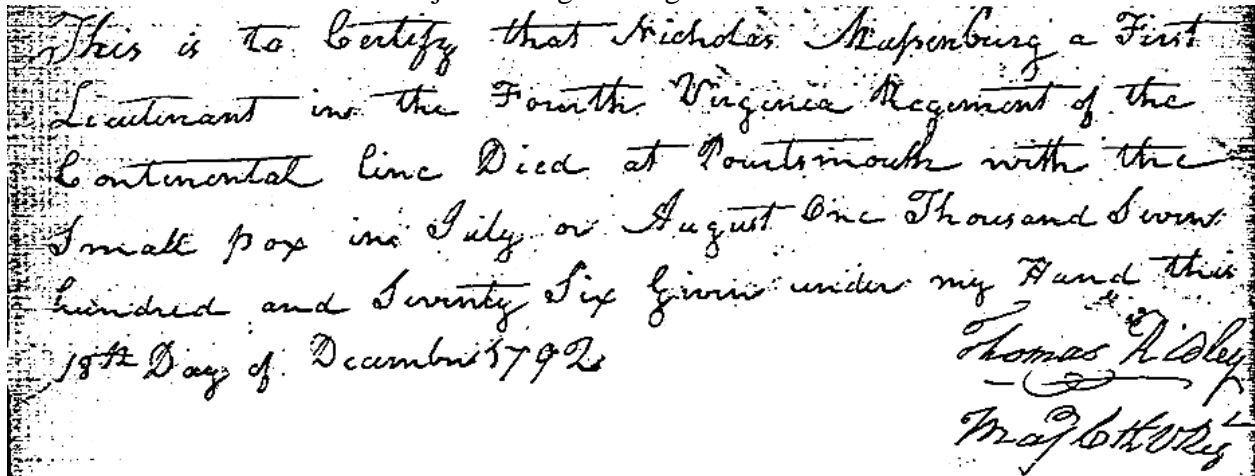 This is to Certify that Nicholas Massenburg a First
Lieutenant in the Fourth Virginia Regement of the
Continental line Died at Pourtsmouth with the
Small pox in July or August One Thousand Seven
hundred and Seventy Six Given under my Hand this
18th Day of December 1792
Thomas Ridley
Maj 6th V Reg